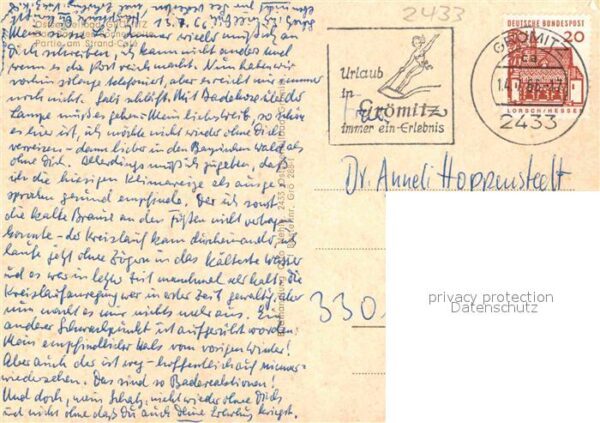 2433
Ostseeheilbad GRÖMITZ
Partie am Strand-Café
13.7.66
Mein süsser Schatz, immer wieder muß ich an
Dich schreiben, ich kann nicht anders und
wenn es die Post reich macht. Nun haben wir
vorhin solange telefoniert, aber es reicht mir immer
noch nicht. Gabi schläft. Mit Badehose über der
Lampe muß es gehen. Mein liebstes, so schön
es hier ist, ich möchte nicht wieder ohne Dich
verreisen - denn lieber in den Bayrischen Wald als
ohne Dich. Allerdings muß ich zugeben, daß
ich die hiesigen Klimareize als ausge-
sprochen gesund empfinde. Der ich sonst
die kalte Brause an den Füßen nicht vertragen
konnte - der Kreislauf kam durcheinander
laufe jetzt ohne Zögern in das kälteste Wasser
und es war in letzter Zeit manchmal sehr kalt. Die
Kreislaufanregung war in erster Zeit gewaltig, aber
nun macht es mir nichts mehr aus. Ein
anderer Schwachpunkt ist aufgerührt worden:
Mein empfindlicher Hals vom vorigen Winter!
Aber auch der ist weg - hoffentlich auf nimmer-
wiedersehen. Das sind so Badereaktionen!
Und doch, mein Schatz, nicht wieder ohne Dich
und nicht ohne daß Du auch Deine Erholung kriegst.
Urlaub
in
Grömitz
immer ein Erlebnis
GRÖMITZ
2433
DEUTSCHE BUNDESPOST
20
LORSCH/HESSEN
Frau
Dr. Anneli Hoppensteelt
330
privacy protection
Datenschutz